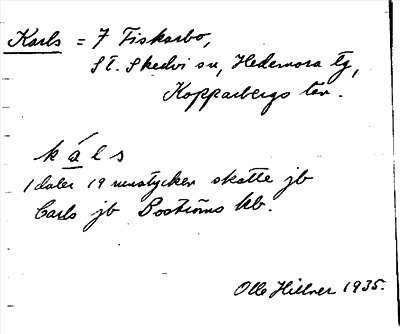 Karls = 7 Fiskarbo,
St. Skedvi sn, Hedemora tg,
Kopparbergs län.
káls
1 daler 19 runstycken skatte jb
Carls jb Boströms kb.
Olle Hillner 1935.